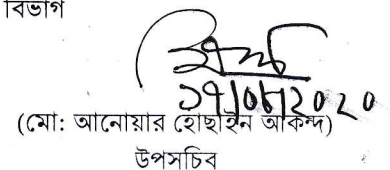 বিভাগ
১৭/০৮/2020
(মো: আনোয়ার হোছাইন আকন্দ)
উপসচিব